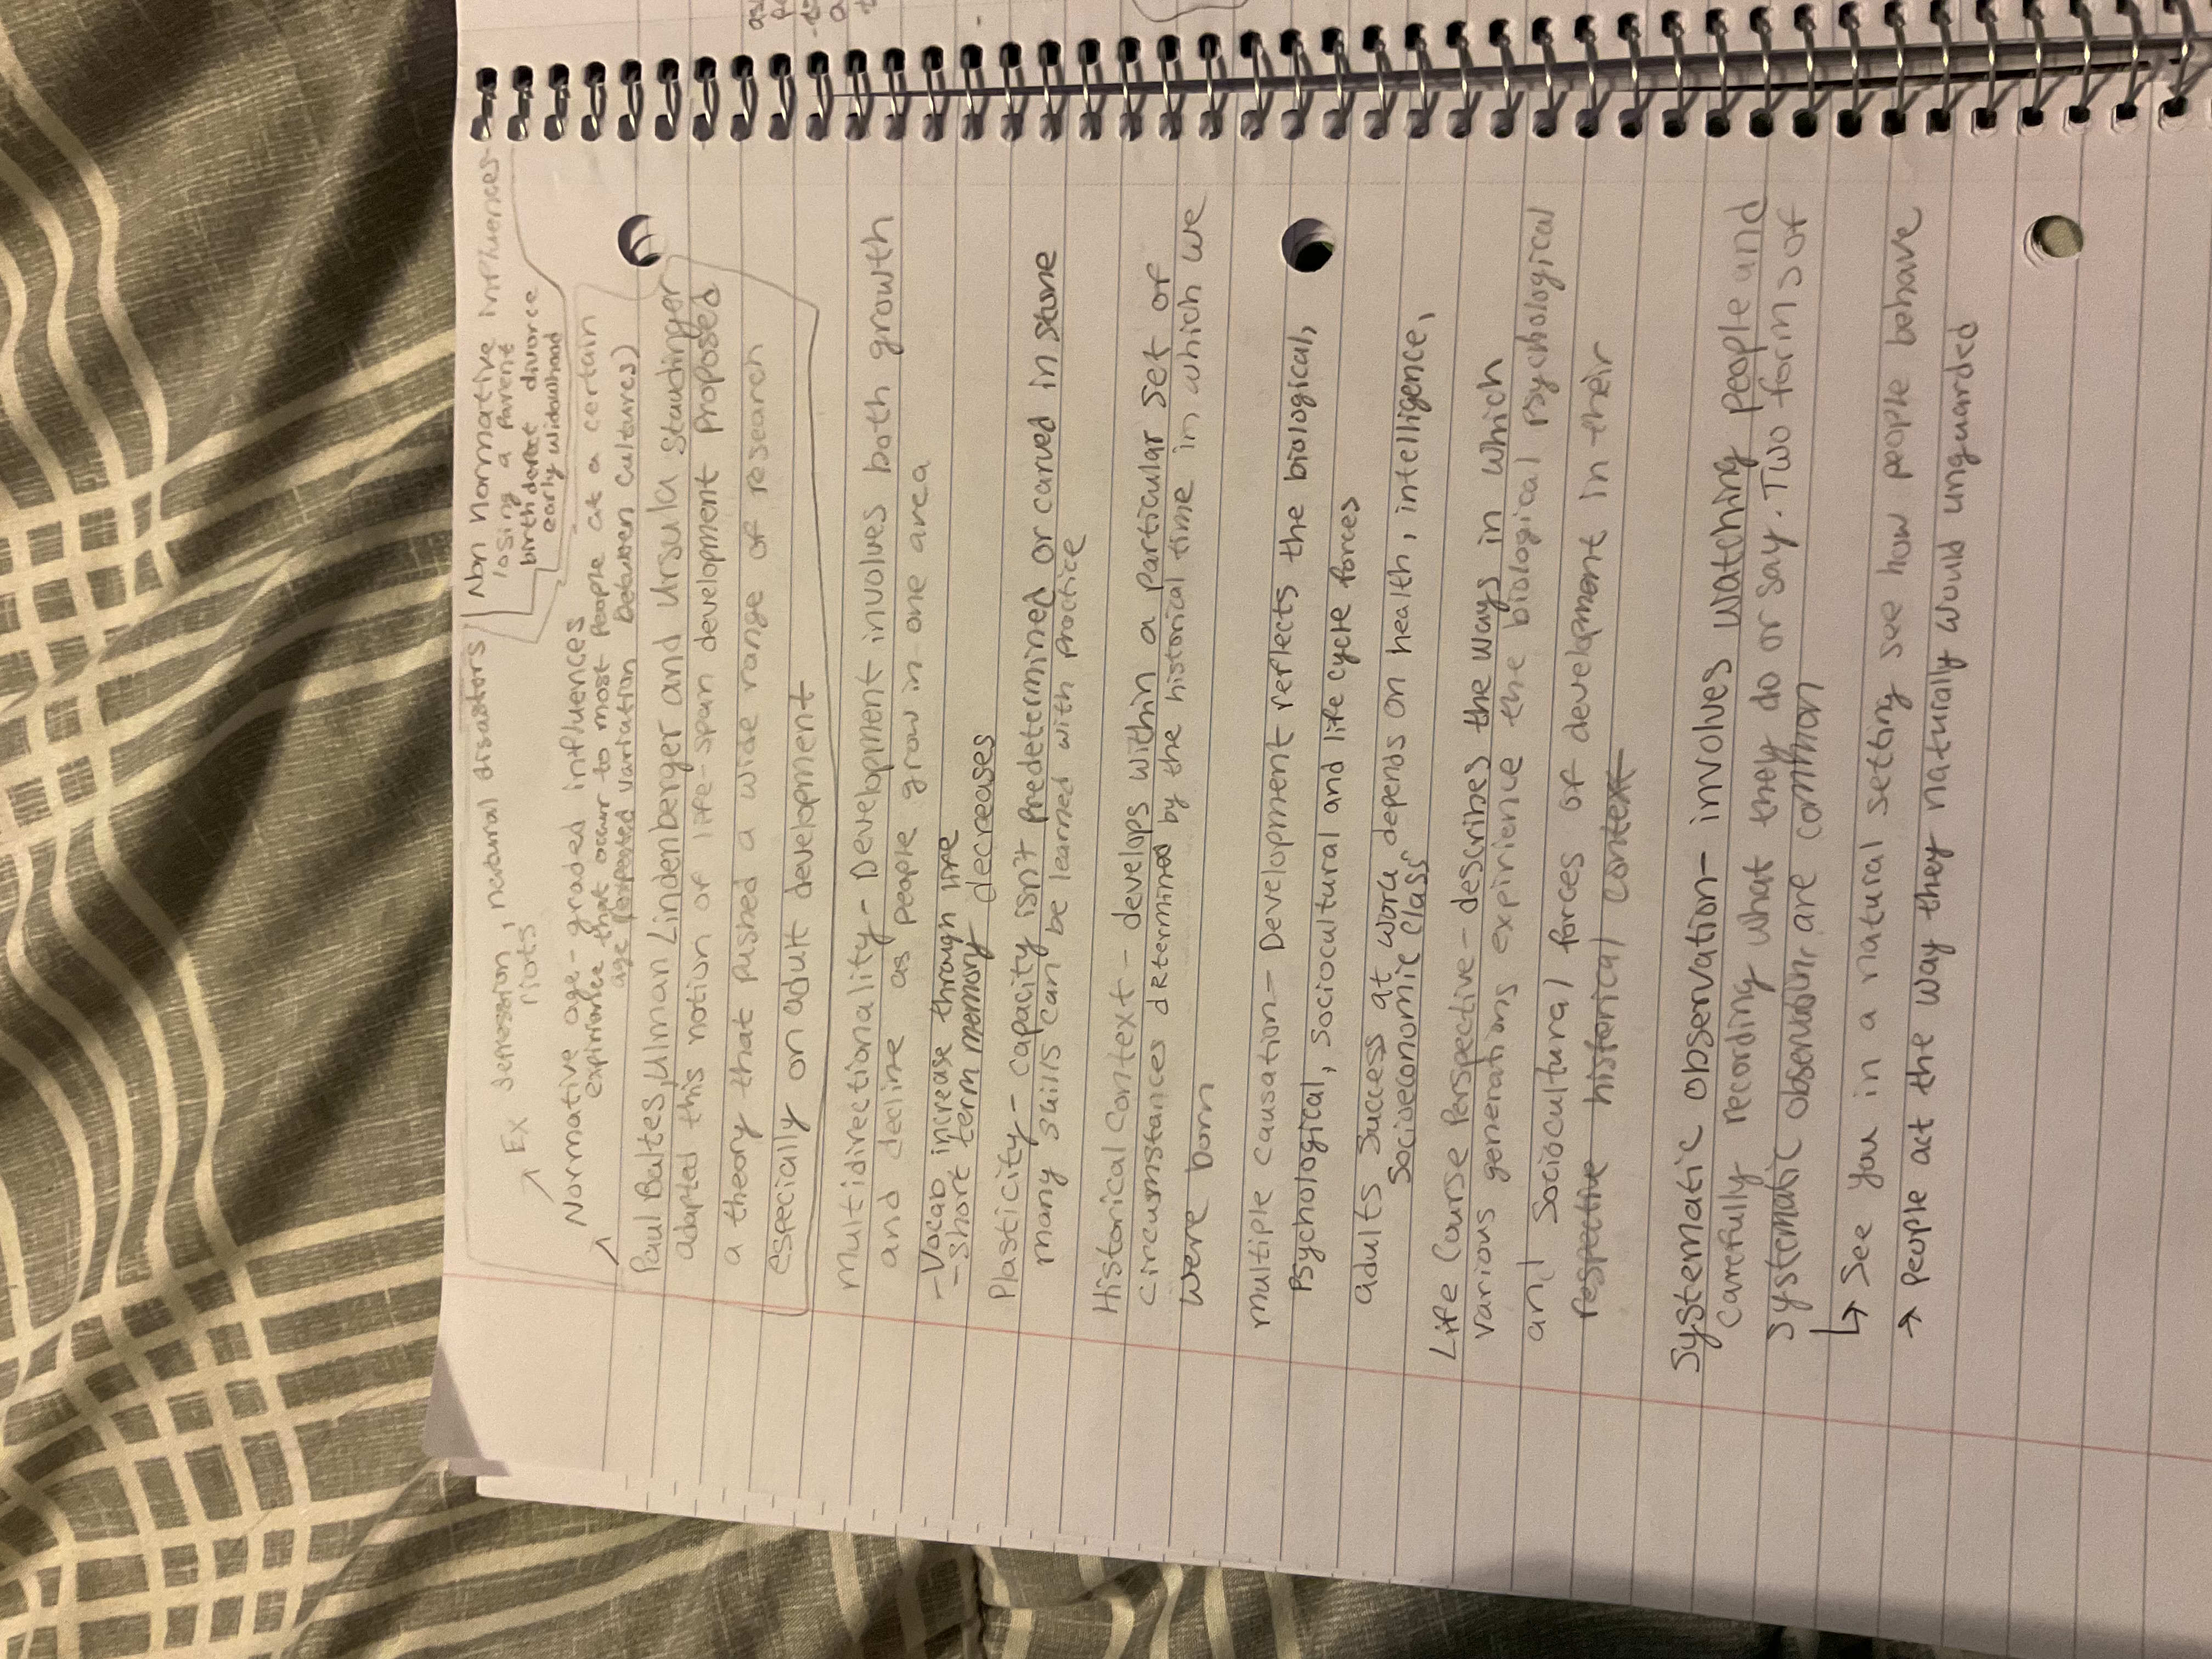 Ex depression, natural disastors
riots
Non Normative influences
losing a parent
birth defect divorce
early widowhood
Normative age-graded influences
expirience that occur to most people at a certain
age (expected variation between cultures)
Paul Baltes, Ulman Lindenberger and Ursula Staudinger
adapted this notion of life-span development proposed
a theory that pushed a wide range of research
especially on adult development
Multidirectionality - Development involves both growth
and decline as people grow in one area
- Vocab increase through life
- short term memory decreases
Plasticity - capacity isn't predetermined or carved in stone
many skills can be learned with practice
Historical Context - develops within a particular set of
circumstances determined by the historical time in which we
were born
multiple causation - Development reflects the biological,
Psychological, sociocultural and life cycle forces
adults success at work depends on health, intelligence,
socioeconomic class
Life Course Perspective - describes the ways in which
various generations expirience the biological psychological
and sociocultural forces of development in their
respective historical context
Systematic observation - involves watching people and
carefully recording what they do or say. Two forms of
systematic observation are common
↳ See you in a natural setting see how people behave
→ people act the way they naturally would unguarded